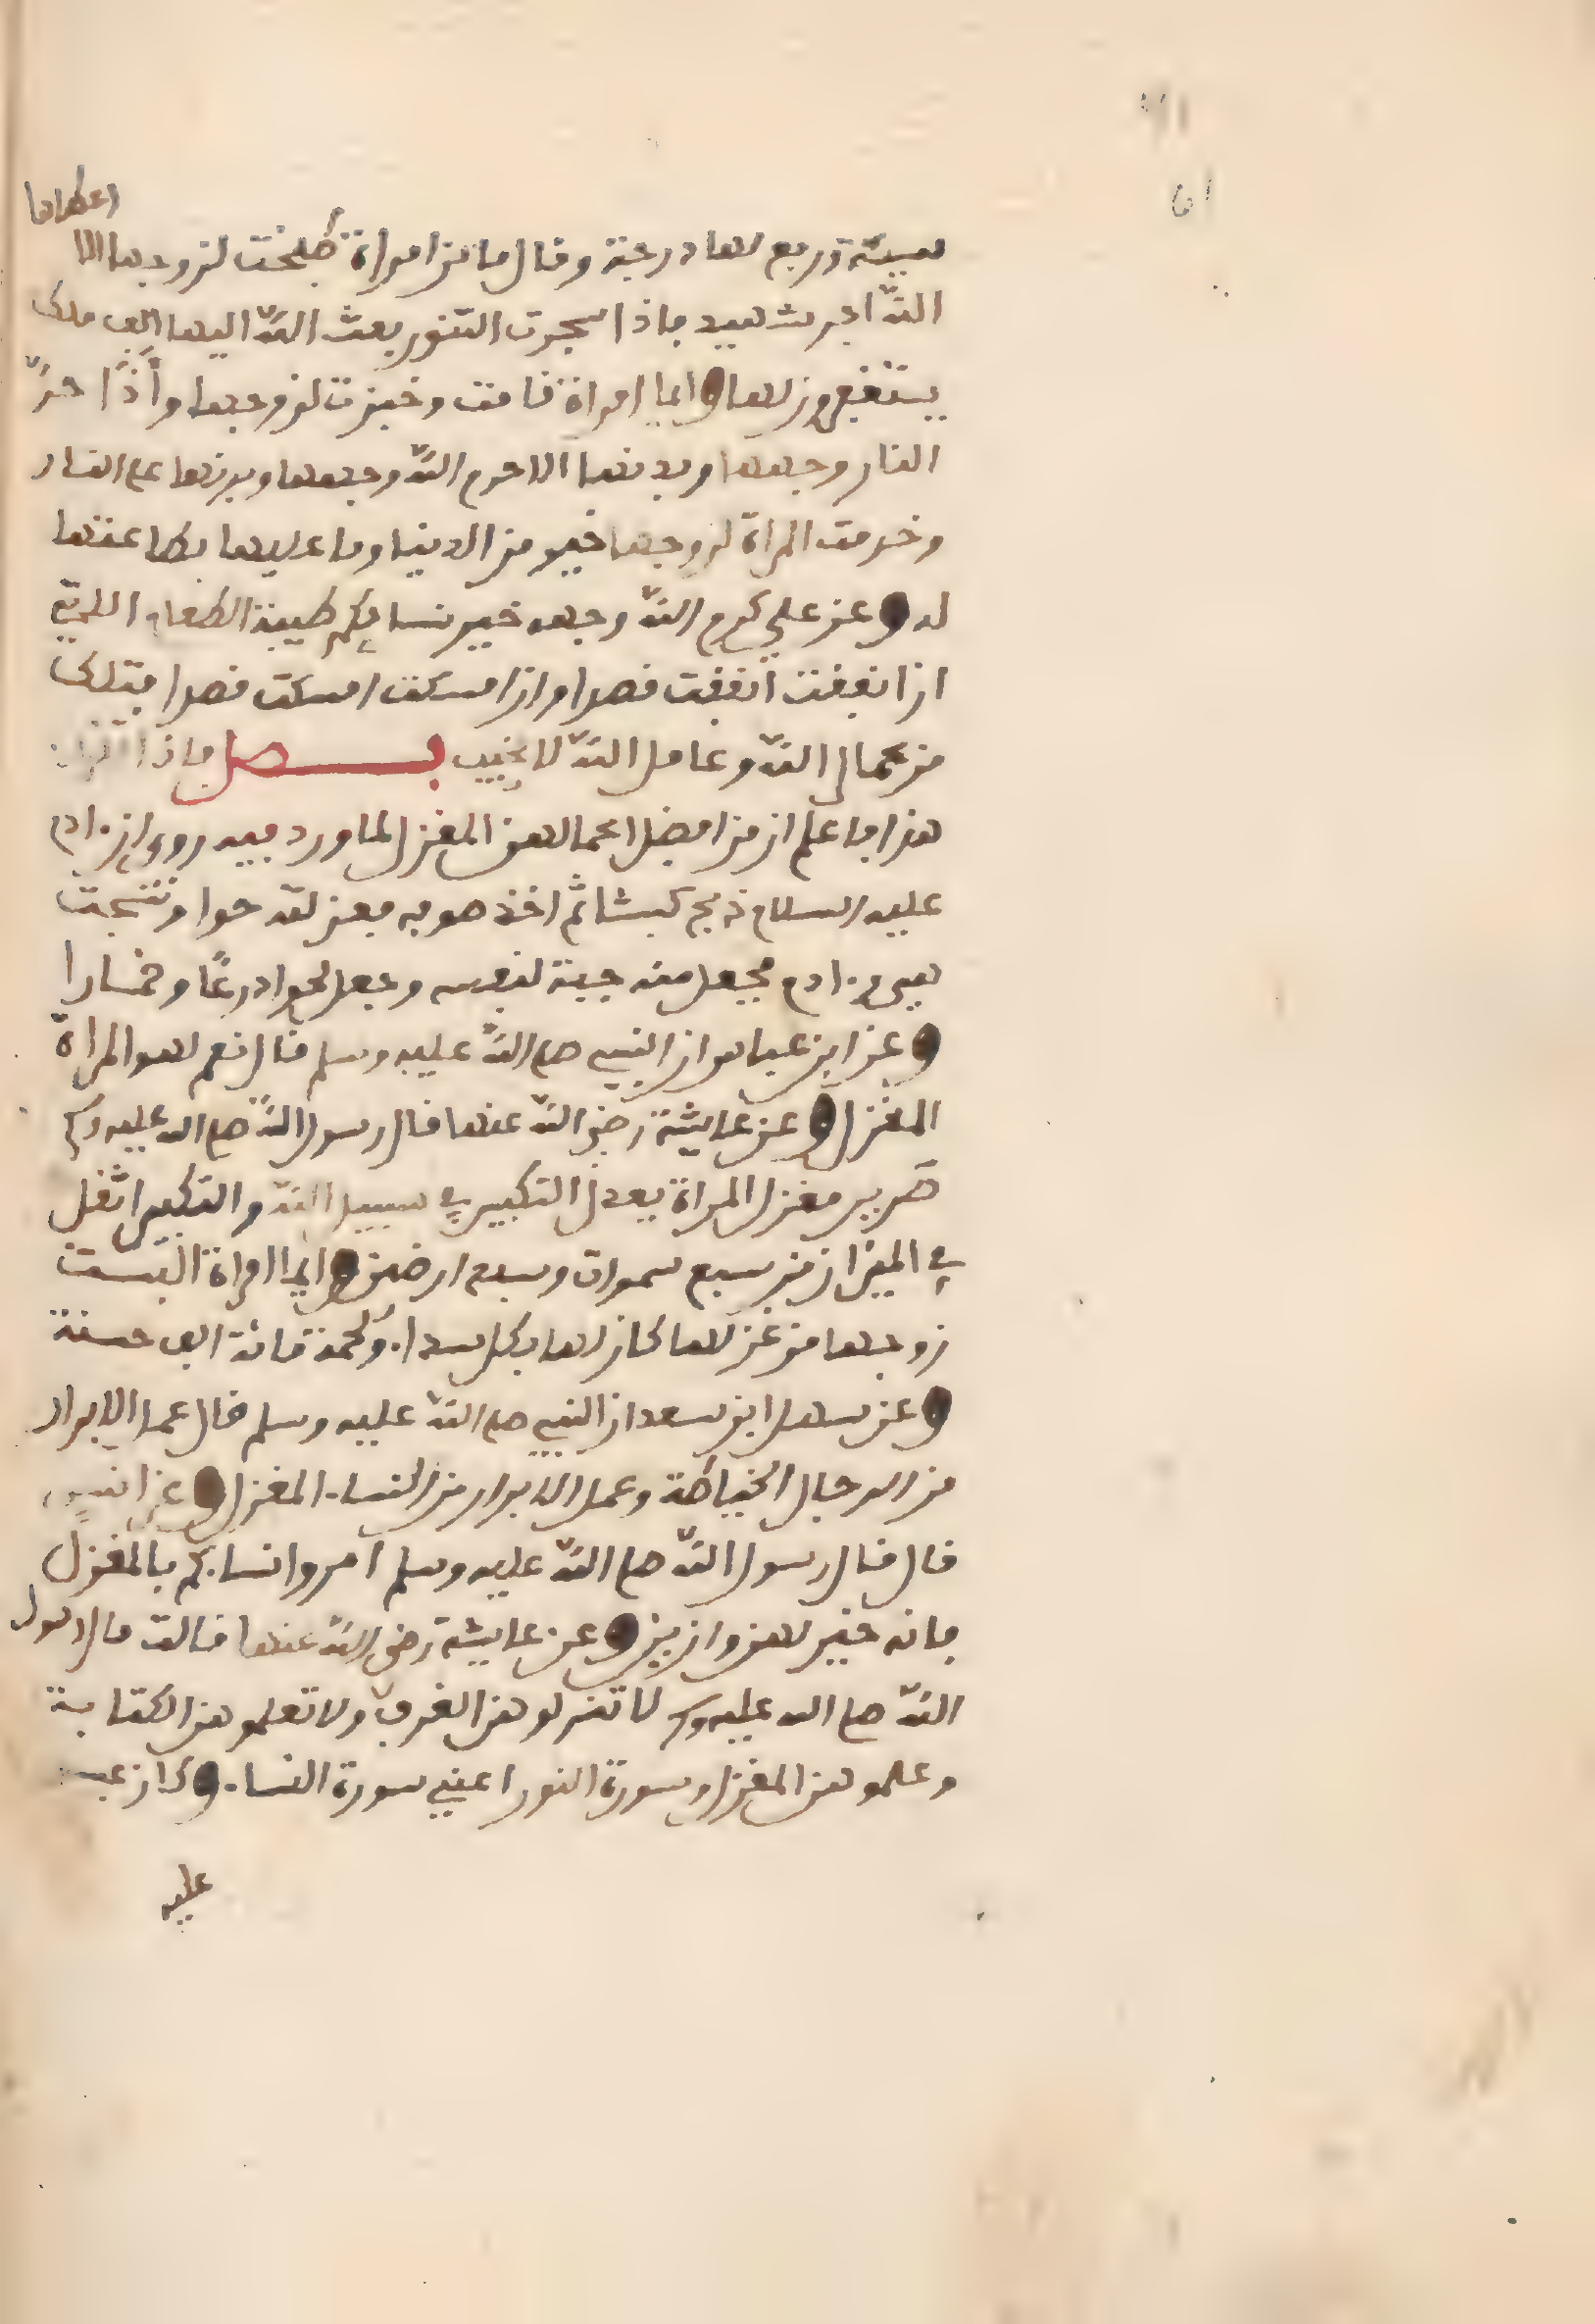 اعطاها
سيئة ورفع لها درجة وقال ما من امراة طبخت لزوجها الا
الله اجر شهيد فاذا سجرت التنور بعث الله اليها الف ملك
يستغفرون لها وايما امراة قامت وخبزت لزوجها واذا حر
النار وجهها وبدنها الا حرم الله وجهها وبدنها على النار
وخدمت المراة لزوجها خير من الدنيا وما عليها بطاعتها
له وعن علي كرم الله وجهه خير نسايكم طيبة الطعام اللتي
ان انفقت انفقت قصدا وان امسكت امسكت قصدا فتلك
من عمال الله وعامل الله لا يخيب فصل فاذا
هذا فاعلم ان من افضل اعمالهن المغزل لما ورد فيه روي ان ادم
عليه السلام ذبح كبشا ثم اخذ صوفه فغزلته حوا ونسجته
هي وادم فجعل منه جبة لنفسه وجعل لحوا درعا وخمارا
وعن ابن عباس ان النبي صلى الله عليه وسلم قال نعم لهو المراة
المغزل وعن عايشة رضي الله عنها قال رسول الله صلى الله عليه وسلم
صرير مغزل المراة يعدل التكبير في سبيل الله والتكبير اثقل
في الميزان من سبع سموات وسبع ارضين وايما امراة البست
زوجها من غزلها كان لها بكل سدا ولحمة مائة الف حسنة
وعن سهل ابن سعد ان النبي صلى الله عليه وسلم قال عمل الابرار
من الرجال الخياطة وعمل الابرار من النساء المغزل وعن انس
قال قال رسول الله صلى الله عليه وسلم امروا نسايكم بالمغزل
فانه خير لهن وازين وعن عايشة رضي الله عنها قالت قال رسول
الله صلى الله عليه وسلم لا تنزلوهن الغرف ولا تعلموهن الكتابة
وعلموهن المغزل وسورة النور اعني سورة النساء وكان
عليه